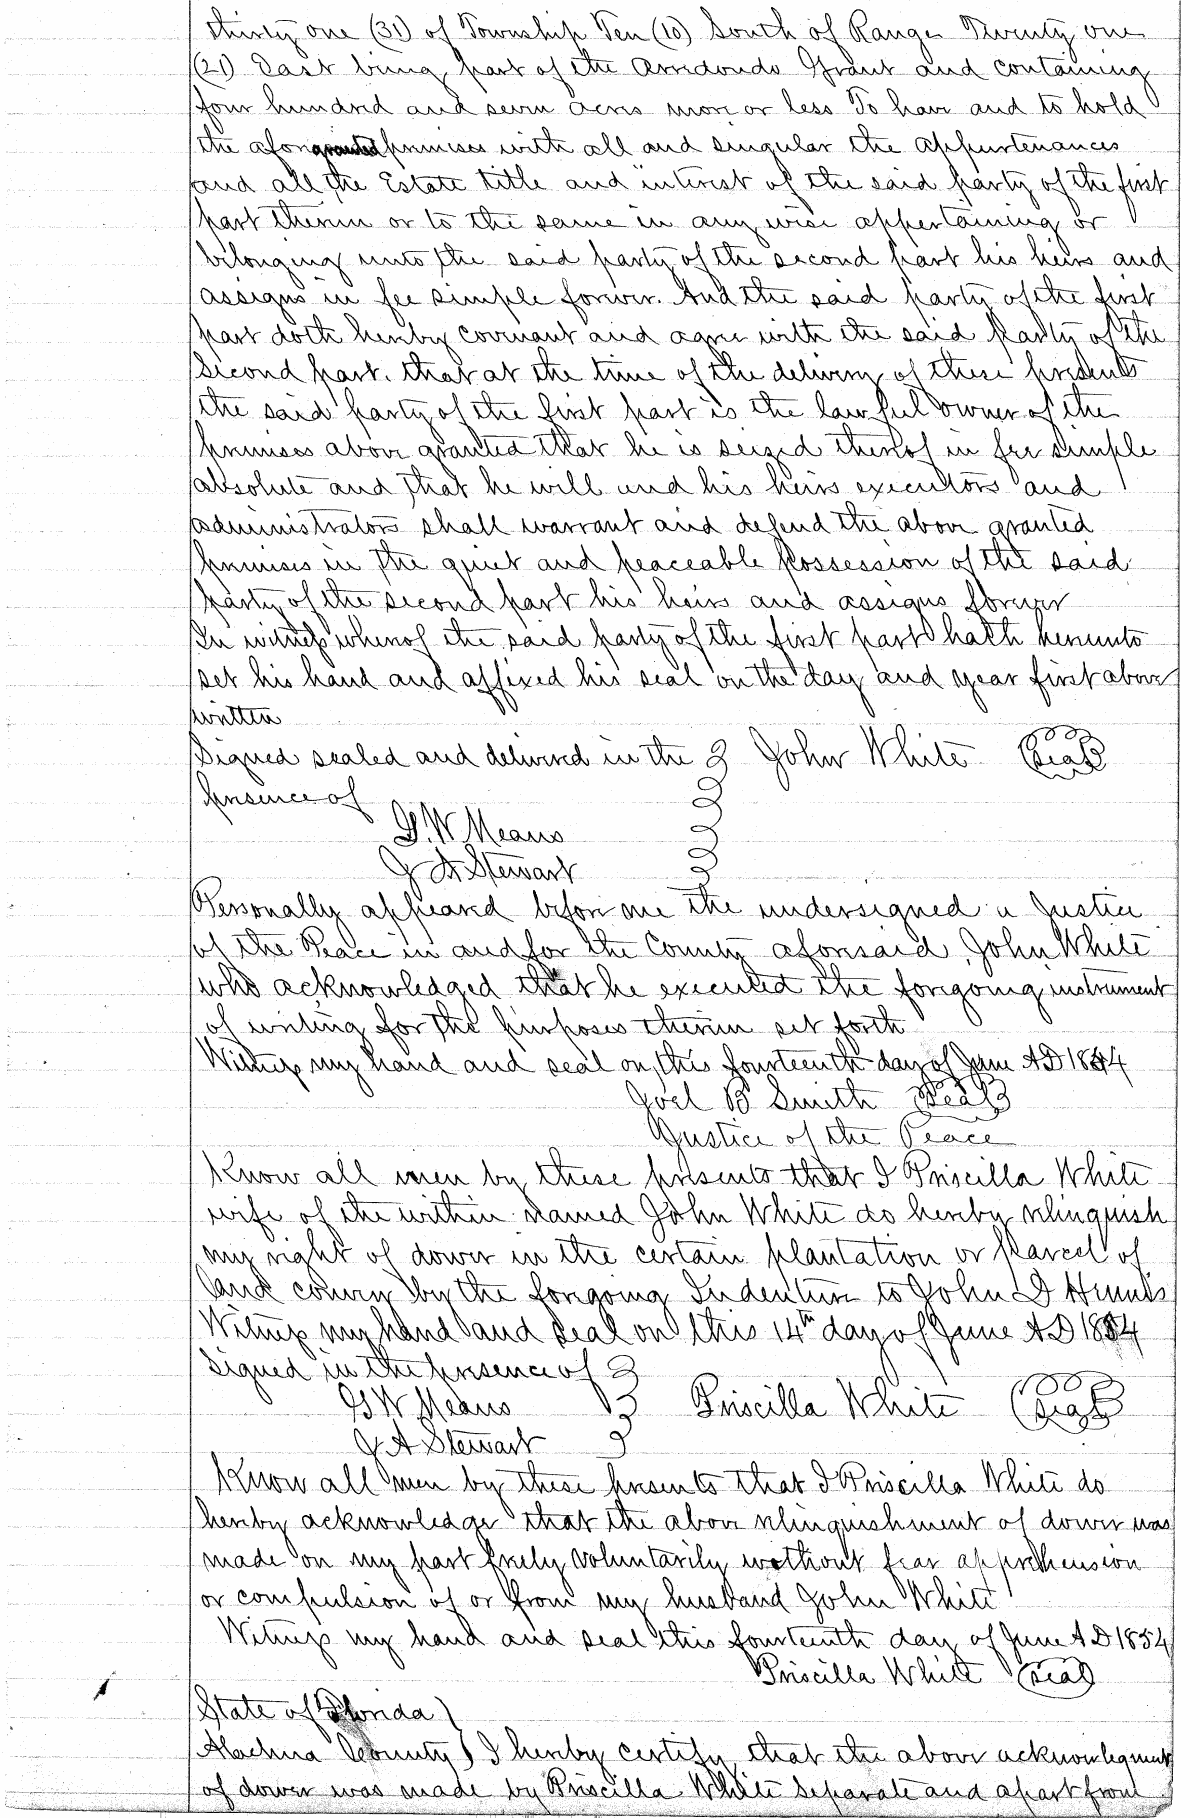 thirty one (31) of Township Ten (10) South of Range Twenty one
(21) East being part of the Arredondo Grant and containing
four hundred and seven acres more or less To have and to hold
the afore granted premises with all and singular the appurtenances
and all the Estate title and interest of the said party of the first
part therein or to the same in any wise appertaining or
belonging unto the said party of the second part his heirs and
assigns in fee simple forever. And the said party of the first
part doth hereby covenant and agree with the said party of the
second part. that at the time of the delivery of these presents
the said party of the first part is the lawful owner of the
premises above granted that he is seized thereof in fee simple
absolute and that he will and his heirs executors and
administrators shall warrant and defend the above granted
premises in the quiet and peaceable possession of the said
party of the second part his heirs and assigns forever
In witness whereof the said party of the first part hath hereunto
set his hand and affixed his seal on the day and year first above
written
Signed sealed and delivered in the John White Seal
presence of
G. W. Means
J A Stewart
Personally appeared before me the undersigned a Justice
of the Peace in and for the County aforesaid John White
who acknowledged that he executed the foregoing instrument
of writing for the purposes therein set forth
Witness my hand and seal on this fourteenth day of June A D 1854
Joel B Smith Seal
Justice of the Peace
Know all men by these presents that I Priscilla White
wife of the within named John White do hereby relinquish
my right of dower in the certain plantation or parcel of
land convey by the foregoing Indenture to John D
Witness my hand and seal on this 14th day of June A D 1854
Signed in the presence of
G W Means Priscilla White Seal
J A Stewart
Know all men by these presents that I Priscilla White do
hereby acknowledge that the above relinquishment of dower was
made on my part freely voluntarily without fear apprehension
or compulsion of or from my husband John White
Witness my hand and seal this fourteenth day of June A D 1854
Priscilla White Seal
State of Florida )
Alachua County ) I hereby certify that the above acknowlegment
of dower was made by Priscilla White separate and apart from